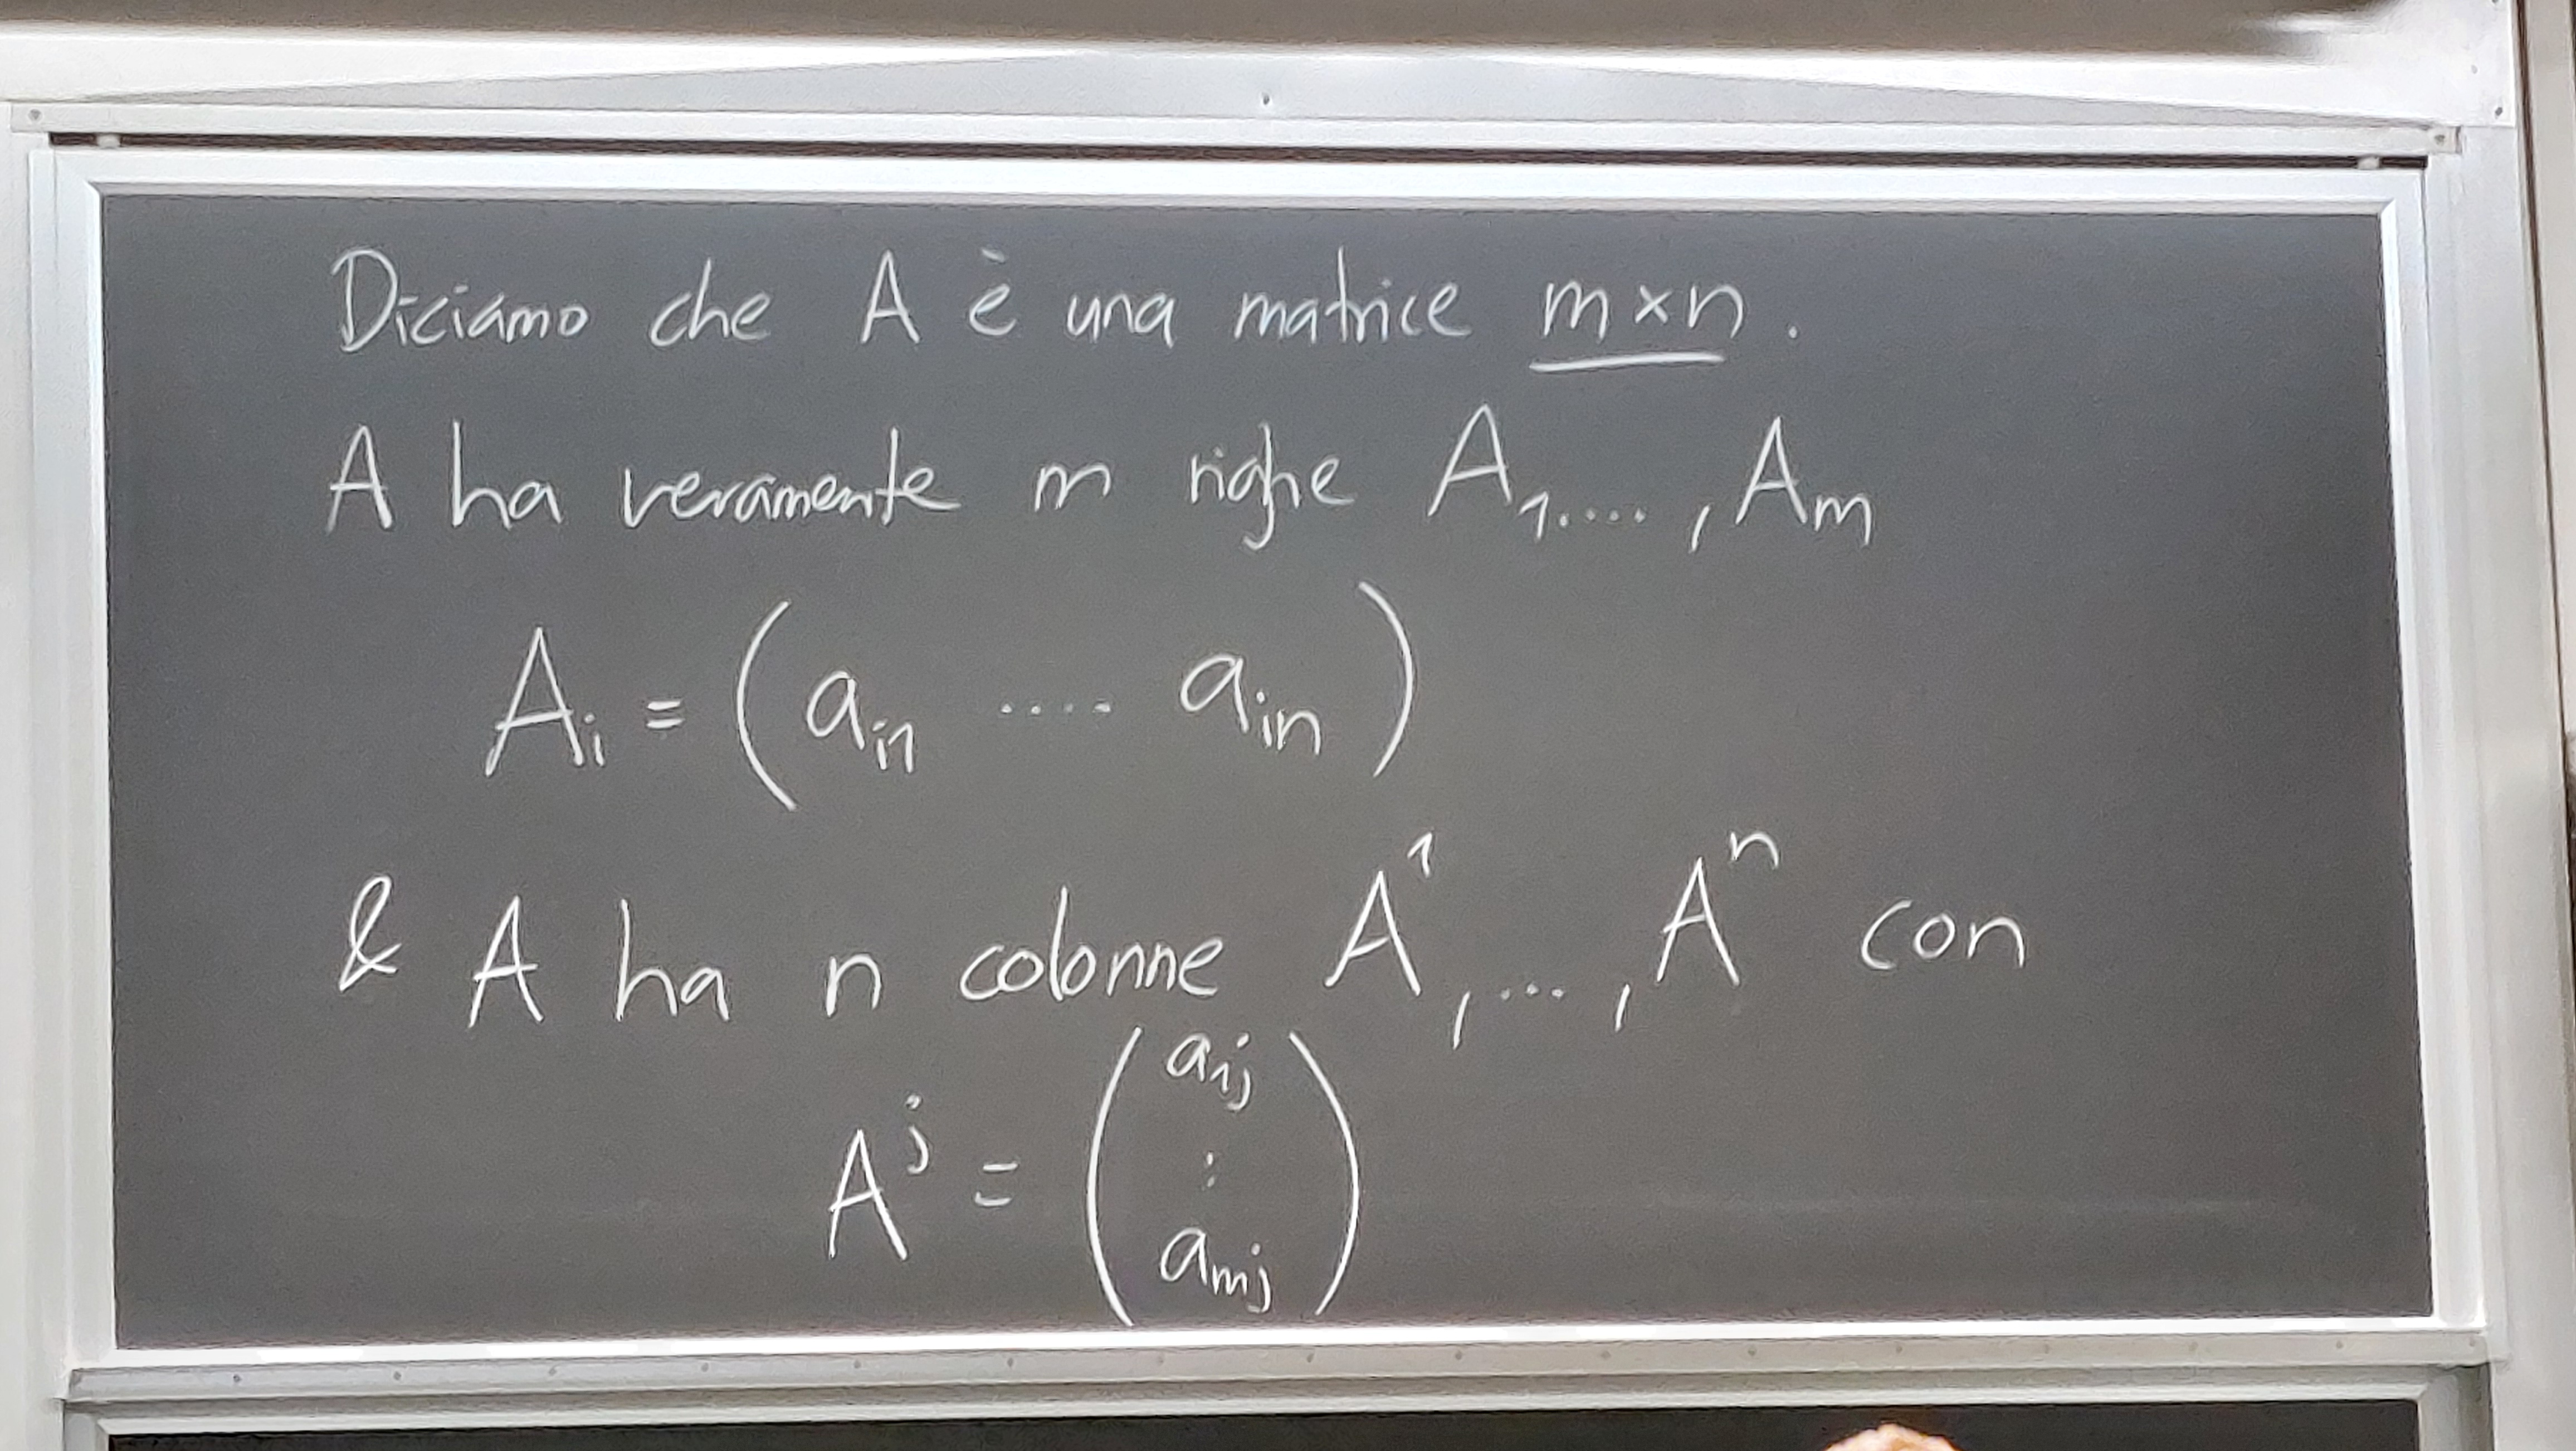 Diciamo che A è una matrice m×n.
A ha veramente m righe A₁...., Aₘ
Aᵢ = (aᵢ₁ .... aᵢₙ)
& A ha n colonne A¹, ..., Aⁿ con
Aʲ = (a₁ⱼ
:
aₘⱼ)